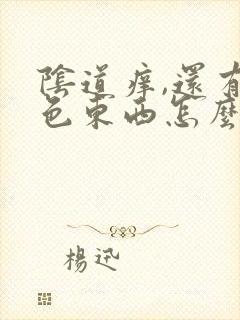 陰道癢,還有
色東西怎麼
楊迅